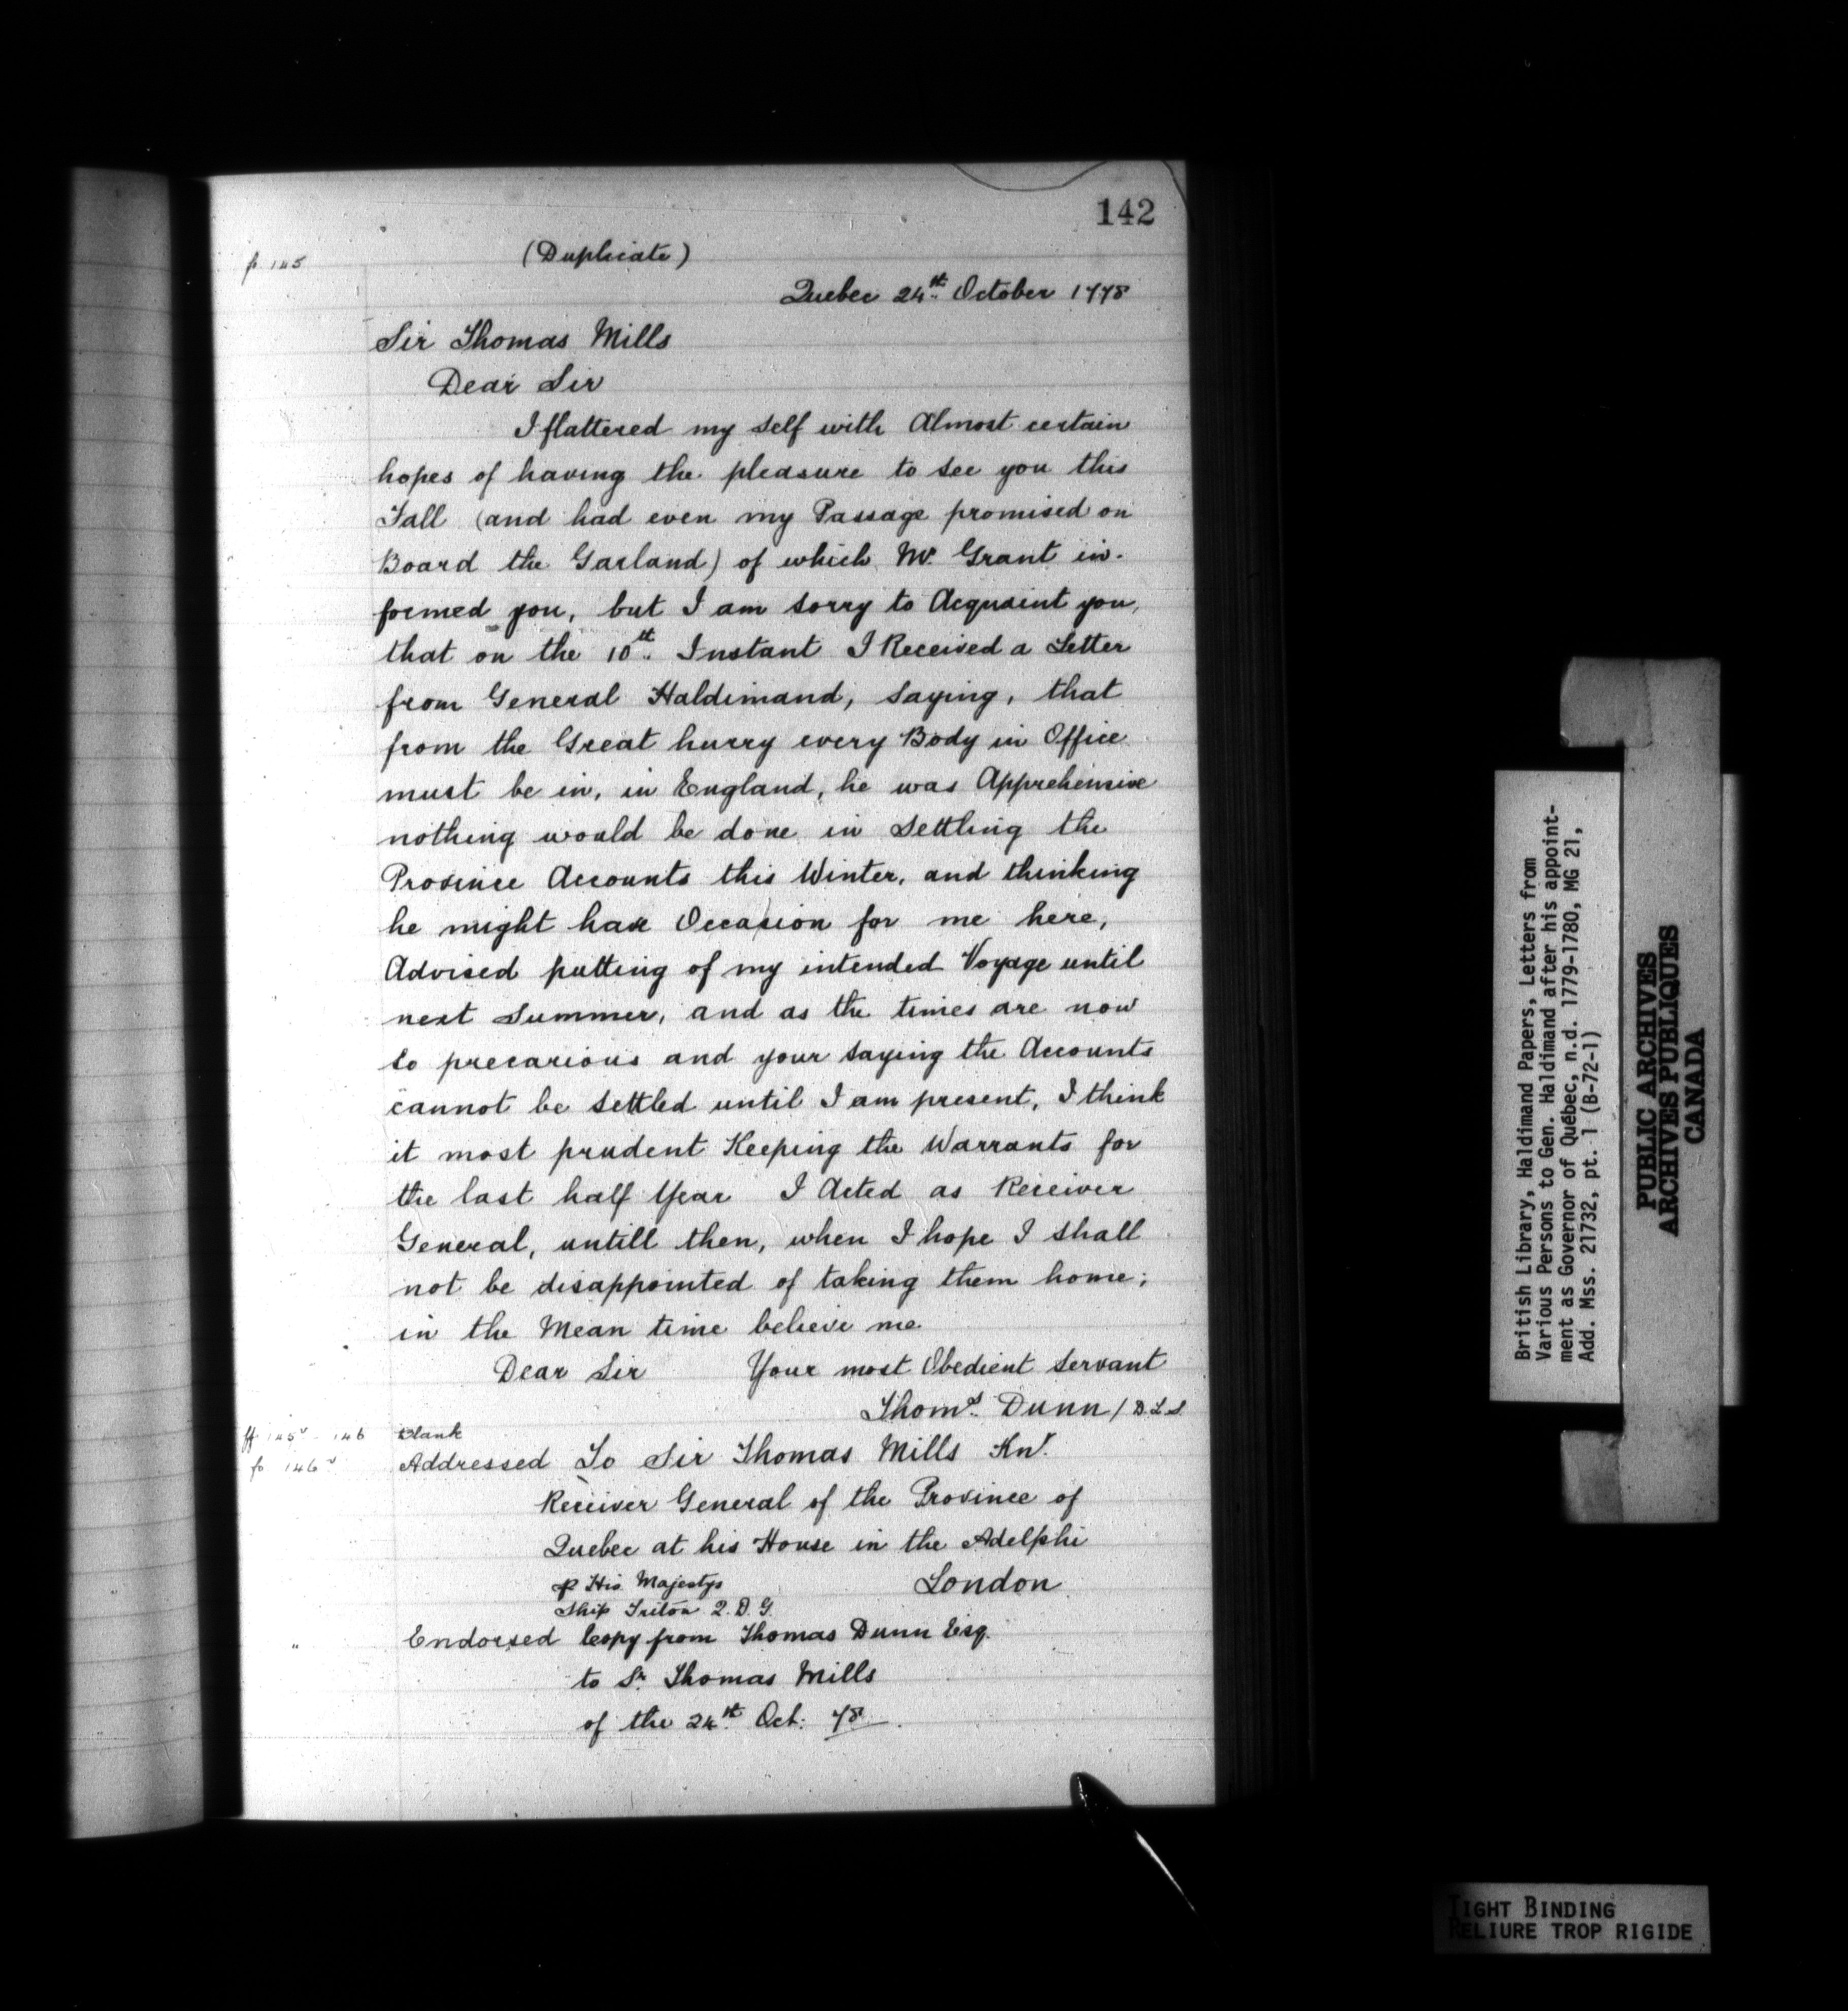 142
fo 145
(Duplicate)
Quebec 24th October 1778
Sir Thomas Mills
Dear Sir
I flattered my self with Almost certain
hopes of having the pleasure to see you this
Fall (and had even my Passage promised on
Board the Garland) of which Mr. Grant in-
formed you, but I am sorry to Acquaint you,
that on the 10th. Instant I Received a Letter
from General Haldimand, saying, that
from the Great hurry every Body in Office
must be in, in England, he was Apprehensive
nothing would be done in Settling the
Province Accounts this Winter, and thinking
he might have Occasion for me here,
Advised putting of my intended Voyage until
next Summer, and as the times are now
so precarious and your saying the Accounts
cannot be settled until I am present, I think
it most prudent Keeping the Warrants for
the last half Year I Acted as Receiver
General, untill then, when I hope I shall
not be disappointed of taking them home;
in the Mean time believe me
Dear Sir Your most Obedient Servant
Thoms. Dunn / D.L.S.
ff 145v - 146 blank
fo 146v Addressed To Sir Thomas Mills Knt.
Receiver General of the Province of
Quebec at his House in the Adelphi
London
P His Majestys
Ship Triton Q. D. G.
" Endorsed Copy from Thomas Dunn Esq.
to Sr. Thomas Mills
of the 24th Oct: 78.
British Library, Haldimand Papers, Letters from
Various Persons to Gen. Haldimand after his appoint-
ment as Governor of Québec, n.d. 1779-1780, MG 21,
Add. Mss. 21732, pt. 1 (B-72-1)
PUBLIC ARCHIVES
ARCHIVES PUBLIQUES
CANADA
TIGHT BINDING
RELIURE TROP RIGIDE